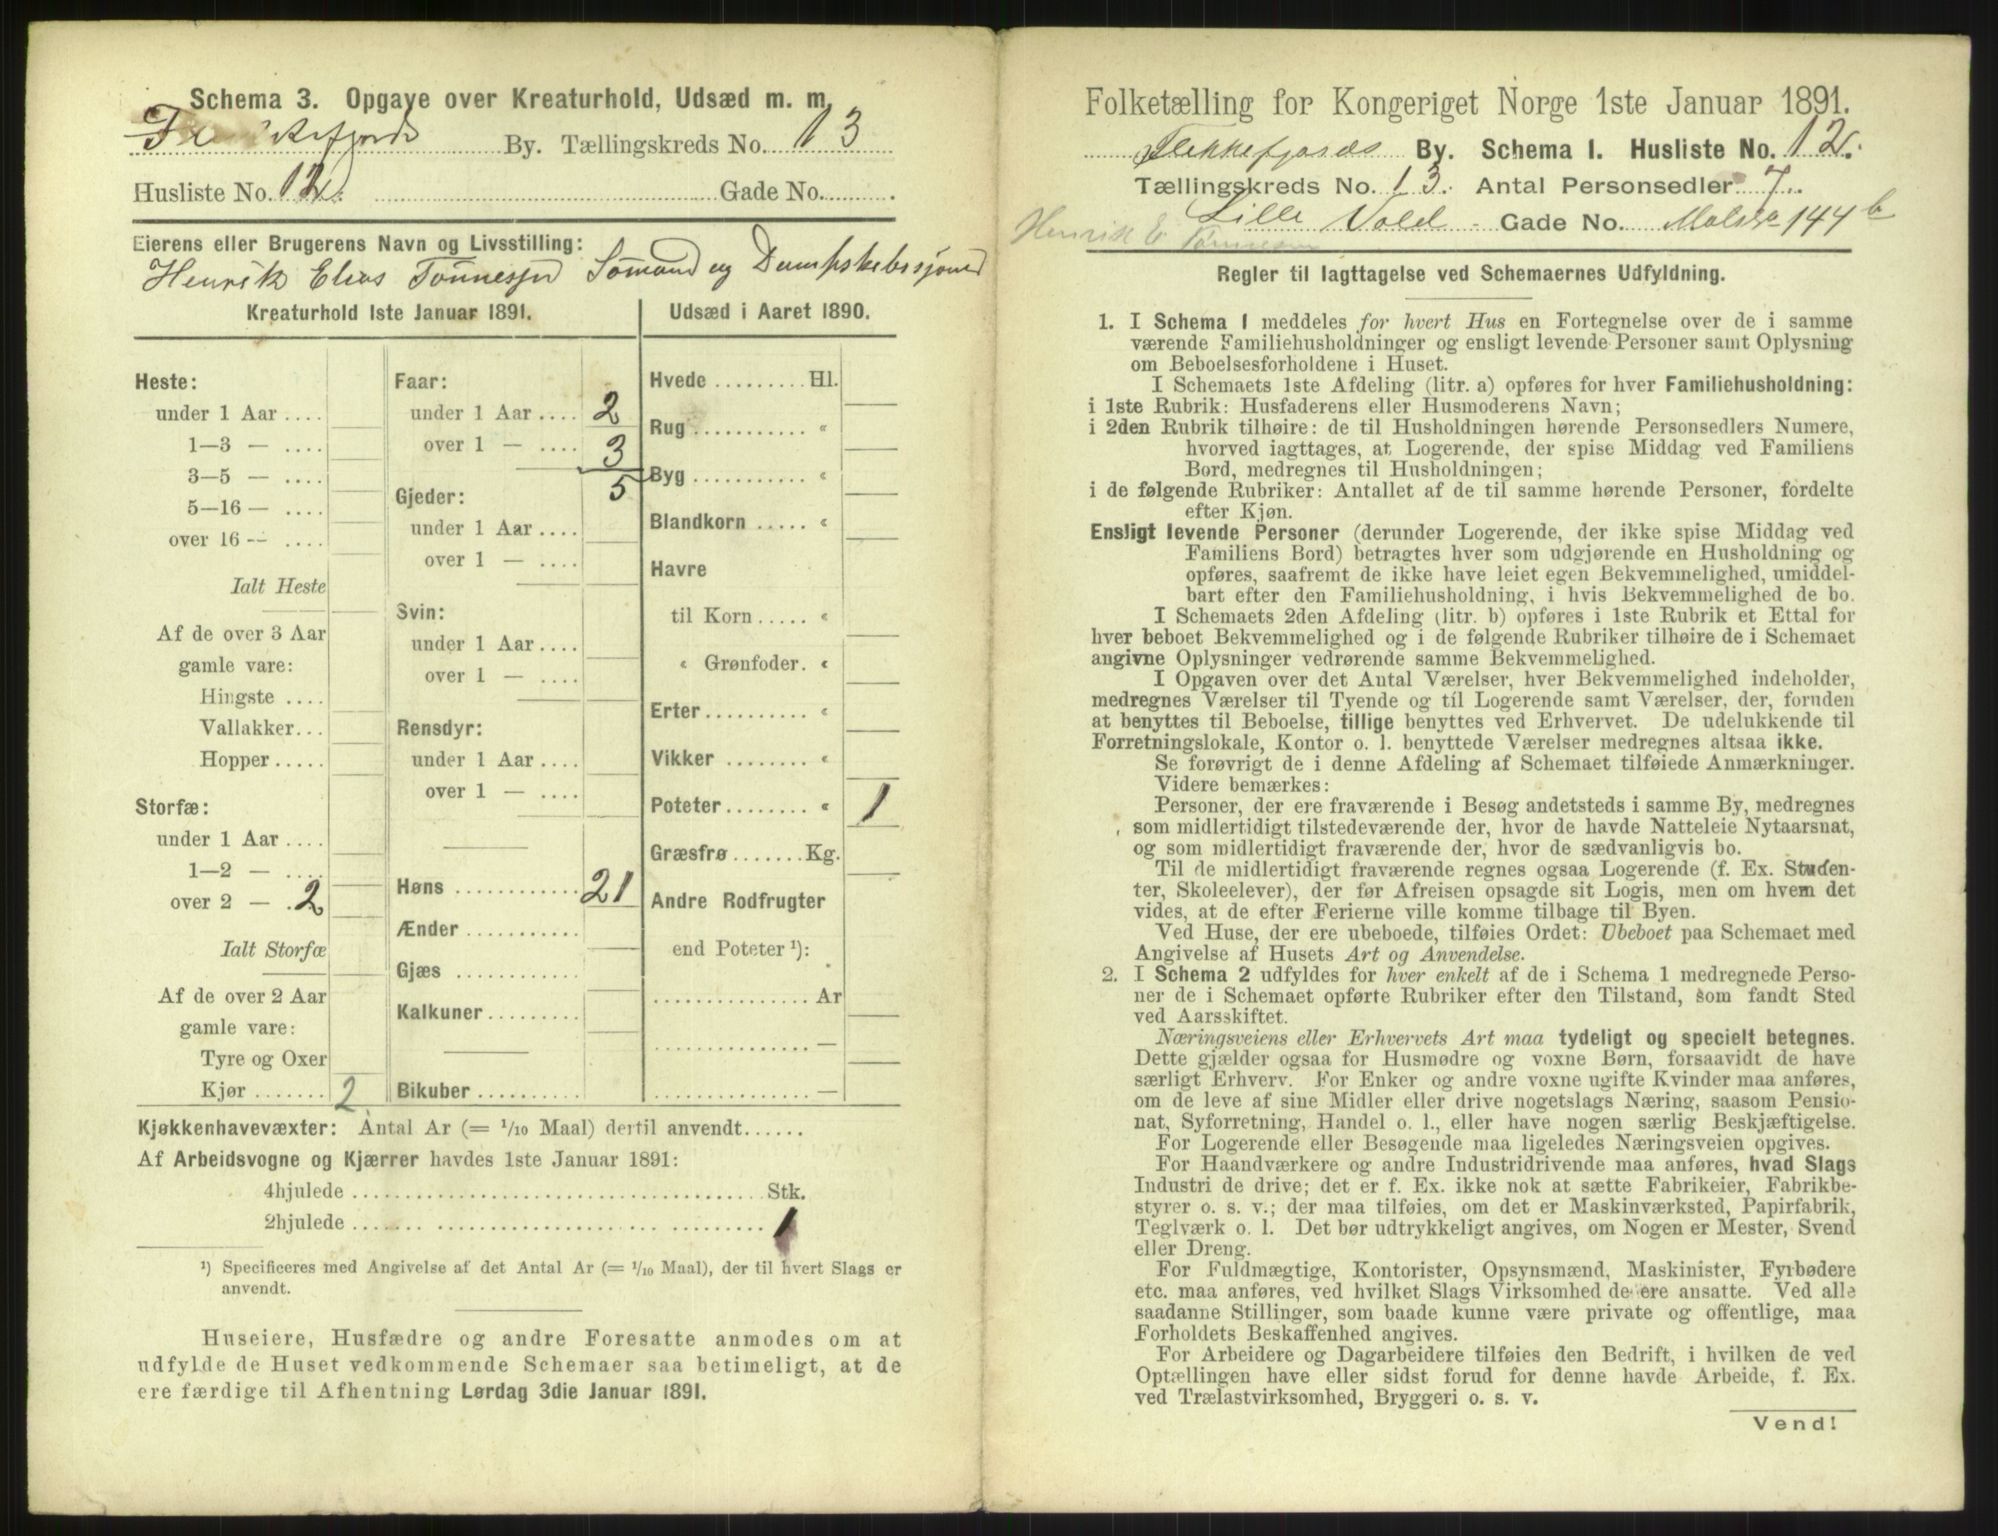 Schema 3. Opgave over Kreaturhold, Udsæd m. m.
Flekkefjords By. Tællingskreds No. 13
Husliste No. 12. Gade No. .
Eierens eller Brugerens Navn og Livsstilling:
Henrik Elias Tønnesen Sømand og
Kreaturhold 1ste Januar 1891.
Heste:
under 1 Aar ....
1—3 — ....
3—5 — ....
5—16 — ....
over 16 — ....
Ialt Heste
Af de over 3 Aar
gamle vare:
Hingste ....
Vallakker...
Hopper .....
Storfæ:
under 1 Aar ....
1—2 — ....
over 2 — . 2
Ialt Storfæ
Af de over 2 Aar
gamle vare:
Tyre og Oxer
Kjør ....... 2
Faar:
under 1 Aar .... 2
over 1 — .... 3
5
Gjeder:
under 1 Aar ....
over 1 — ....
Svin:
under 1 Aar ....
over 1 — ....
Rensdyr:
under 1 Aar ....
over 1 — ....
Høns ........... 21
Ænder ...........
Gjæs ...........
Kalkuner.........
Bikuber ..........
Udsæd i Aaret 1890.
Hvede ......... Hl.
Rug ........... «
Byg ........... «
Blandkorn ..... «
Havre
til Korn ..... «
« Grønfoder. «
Erter.......... «
Vikker ........ «
Poteter ........ « 1
Græsfrø ....... Kg.
Andre Rodfrugter
end Poteter ¹):
............... Ar
............... —
............... —
Kjøkkenhavevæxter: Antal Ar (= 1/10 Maal) dertil anvendt......
Af Arbeidsvogne og Kjærrer havdes 1ste Januar 1891:
4hjulede ........................................ Stk.
2hjulede ........................................ 1
¹) Specificeres med Angivelse af det Antal Ar (= 1/10 Maal), der til hvert Slags er
anvendt.
Huseiere, Husfædre og andre Foresatte anmodes om at
udfylde de Huset vedkommende Schemaer saa betimeligt, at de
ere færdige til Afhentning Lørdag 3die Januar 1891.
Folketælling for Kongeriget Norge 1ste Januar 1891.
Flekkefjords By. Schema 1. Husliste No. 12.
Tællingskreds No. 13. Antal Personsedler 7.
Lille Vold Gade No. 144 b
Henrik E Tønnesen
Regler til Iagttagelse ved Schemaernes Udfyldning.
1. I Schema 1 meddeles for hvert Hus en Fortegnelse over de i samme
værende Familiehusholdninger og ensligt levende Personer samt Oplysning
om Beboelsesforholdene i Huset.
I Schemaets 1ste Afdeling (litr. a) opføres for hver Familiehusholdning:
i 1ste Rubrik: Husfaderens eller Husmoderens Navn;
i 2den Rubrik tilhøire: de til Husholdningen hørende Personsedlers Numere,
hvorved iagttages, at Logerende, der spise Middag ved Familiens
Bord, medregnes til Husholdningen;
i de følgende Rubriker: Antallet af de til samme hørende Personer, fordelte
efter Kjøn.
Ensligt levende Personer (derunder Logerende, der ikke spise Middag ved
Familiens Bord) betragtes hver som udgjørende en Husholdning og
opføres, saafremt de ikke have leiet egen Bekvemmelighed, umiddel-
bart efter den Familiehusholdning, i hvis Bekvemmelighed de bo.
I Schemaets 2den Afdeling (litr. b) opføres i 1ste Rubrik et Ettal for
hver beboet Bekvemmelighed og i de følgende Rubriker tilhøire de i Schemaet
angivne Oplysninger vedrørende samme Bekvemmelighed.
I Opgaven over det Antal Værelser, hver Bekvemmelighed indeholder,
medregnes Værelser til Tyende og til Logerende samt Værelser, der, foruden
at benyttes til Beboelse, tillige benyttes ved Erhvervet. De udelukkende til
Forretningslokale, Kontor o. l. benyttede Værelser medregnes altsaa ikke.
Se forøvrigt de i denne Afdeling af Schemaet tilføiede Anmærkninger.
Videre bemærkes:
Personer, der ere fraværende i Besøg andetsteds i samme By, medregnes
som midlertidigt tilstedeværende der, hvor de havde Natteleie Nytaarsnat,
og som midlertidigt fraværende der, hvor de sædvanligvis bo.
Til de midlertidigt fraværende regnes ogsaa Logerende (f. Ex. Studen-
ter, Skoleelever), der før Afreisen opsagde sit Logis, men om hvem det
vides, at de efter Ferierne ville komme tilbage til Byen.
Ved Huse, der ere ubeboede, tilføies Ordet: Ubeboet paa Schemaet med
Angivelse af Husets Art og Anvendelse.
2. I Schema 2 udfyldes for hver enkelt af de i Schema 1 medregnede Perso-
ner de i Schemaet opførte Rubriker efter den Tilstand, som fandt Sted
ved Aarsskiftet.
Næringsveiens eller Erhvervets Art maa tydeligt og specielt betegnes.
Dette gjælder ogsaa for Husmødre og voxne Børn, forsaavidt de have
særligt Erhverv. For Enker og andre voxne ugifte Kvinder maa anføres,
om de leve af sine Midler eller drive nogetslags Næring, saasom Pensio-
nat, Syforretning, Handel o. l., eller have nogen særlig Beskjæftigelse.
For Logerende eller Besøgende maa ligeledes Næringsveien opgives.
For Haandværkere og andre Industridrivende maa anføres, hvad Slags
Industri de drive; det er f. Ex. ikke nok at sætte Fabrikeier, Fabrikbe-
styrer o. s. v.; der maa tilføies, om det er Maskinværksted, Papirfabrik,
Teglværk o. l. Det bør udtrykkeligt angives, om Nogen er Mester, Svend
eller Dreng.
For Fuldmægtige, Kontorister, Opsynsmænd, Maskinister, Fyrbødere
etc. maa anføres, ved hvilket Slags Virksomhed de ere ansatte. Ved alle
saadanne Stillinger, som baade kunne være private og offentlige, maa
Forholdets Beskaffenhed angives.
For Arbeidere og Dagarbeidere tilføies den Bedrift, i hvilken de ved
Optællingen have eller sidst forud for denne havde Arbeide, f. Ex.
ved Trælastvirksomhed, Bryggeri o. s. v.
Vend!